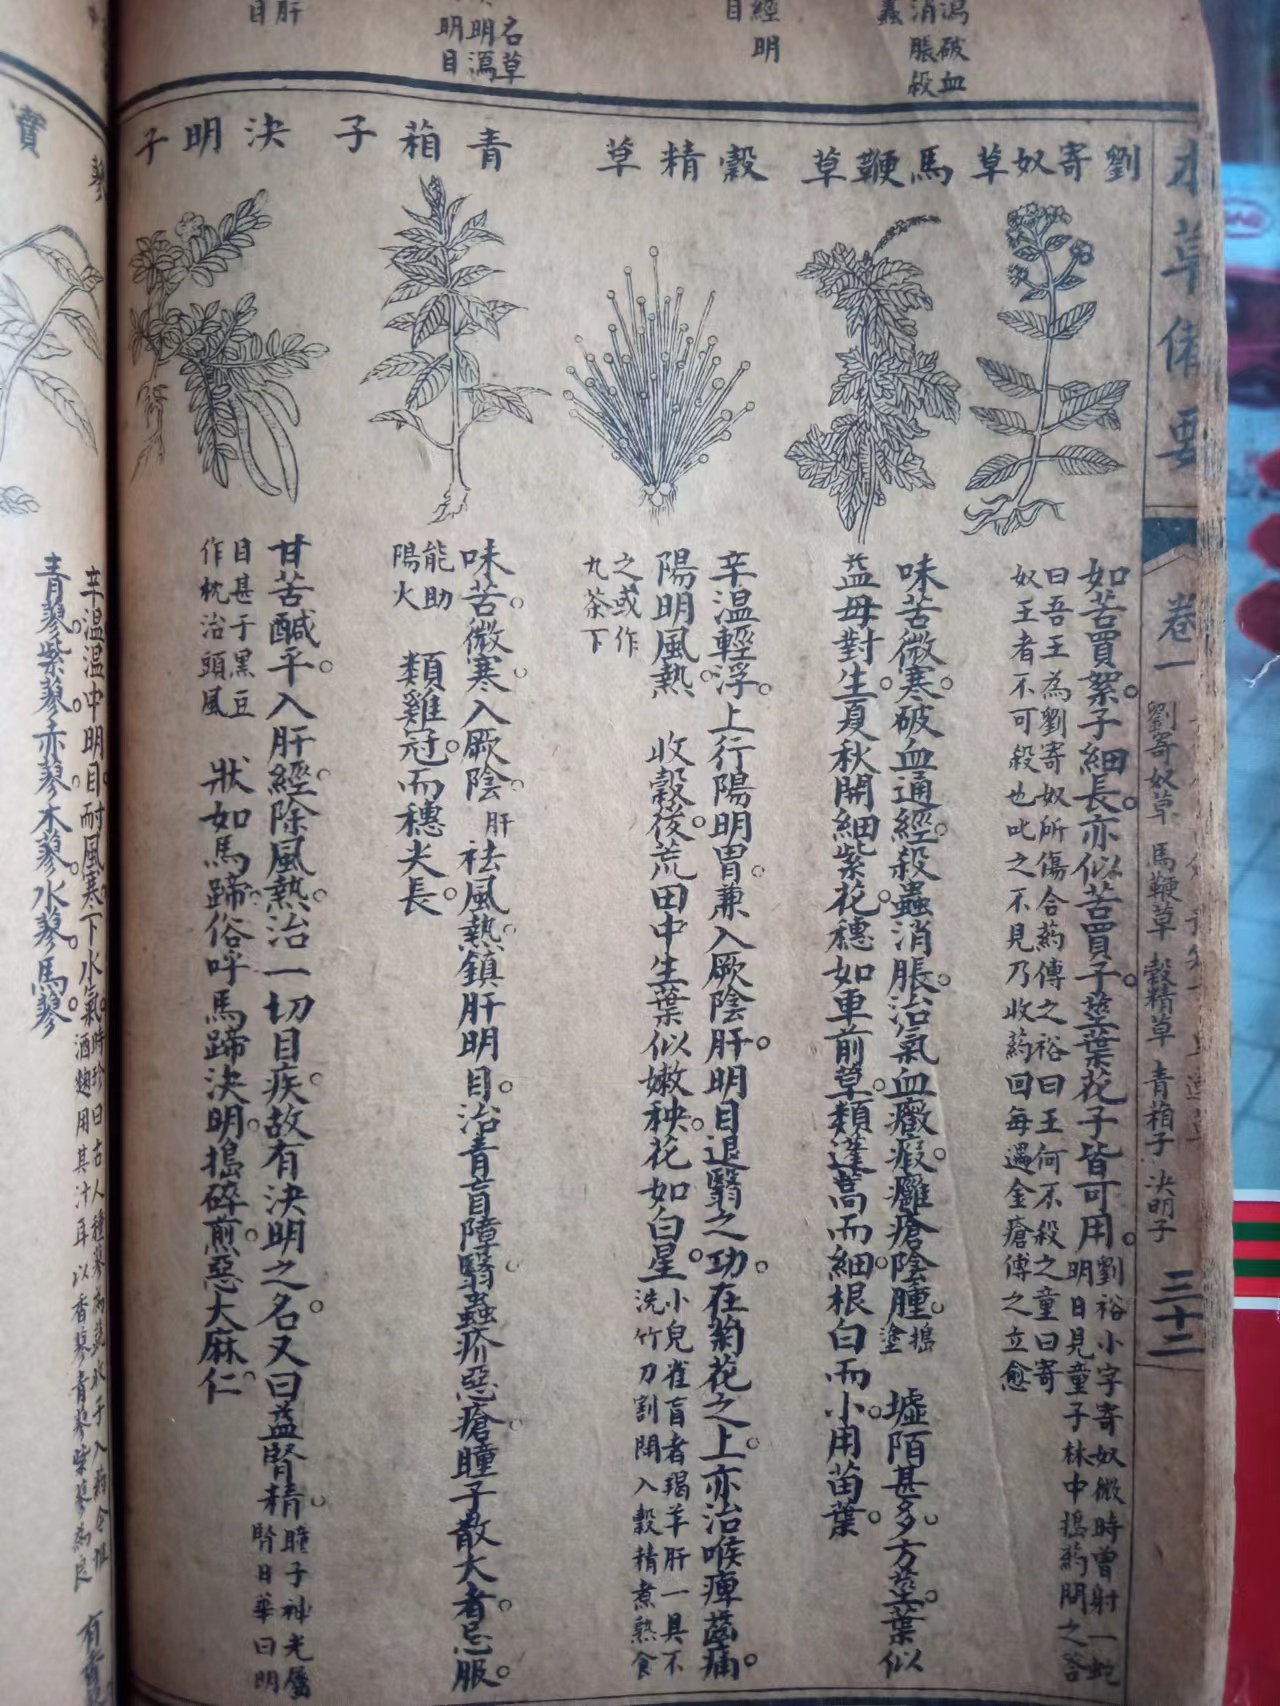 本草備要
卷一
劉寄奴草 馬鞭草 穀精草 青葙子 決明子
三十二
瀉破血
消脹殺
蟲
經明
目
名草
明瀉
明目
肝
目
劉寄奴草
馬鞭草
穀精草
青葙子
決明子
如苦賈絮子細長亦似苦賈子莖葉花子皆可用
劉裕小字寄奴微時曾射一蛇
明日見童子林中搗葯問之答
曰吾王為劉寄奴所傷合葯傅之裕曰王何不殺之童曰寄
奴王者不可殺也叱之不見乃收葯回每遇金瘡傅之立愈
味苦微寒破血通經殺蟲消脹治氣血癥瘕癰瘡陰腫
搗
塗
墟陌甚多方莖葉似
益母對生夏秋開細紫花穗如車前草類蓬蒿而細根白而小用苗葉
辛溫輕浮上行陽明胃兼入厥陰肝明目退翳之功在菊花之上亦治喉痺齒痛
陽明風熱
收穀後荒田中生葉似嫩秧花如白星
小兒雀盲者羯羊肝一具不
洗竹刀割開入穀精煮熟食
之或作
丸茶下
味苦微寒入厥陰
肝
祛風熱鎮肝明目治青盲障翳蟲疥惡瘡瞳子散大者忌服
能助
陽火
類雞冠而穗大長
甘苦鹹平入肝經除風熱治一切目疾故有決明之名又曰益腎精
瞳子神光屬
腎日華曰明
目甚于黑豆
作枕治頭風
狀如馬蹄俗呼馬蹄決明搗碎煎惡大麻仁
蓼
實
辛溫溫中明目耐風寒下水氣
時珍曰古人種蓼為蔬收子入藥
酒麯用其汁耳以香蓼青蓼紫蓼為良
青蓼紫蓼赤蓼木蓼水蓼馬蓼